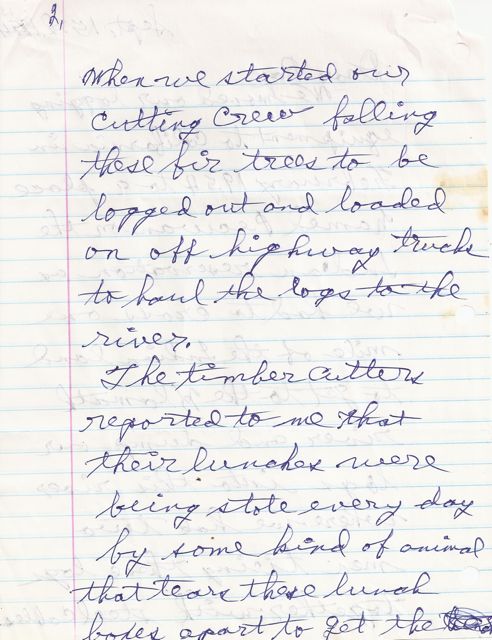 2,
When we started our
Cutting Crew falling
these fir trees to be
logged out and loaded
on off highway trucks
to haul the logs to the
river.
The timber cutters
reported to me that
their lunches were
being stole every day
by some kind of animal
that tears these lunch
boxes apart to get the